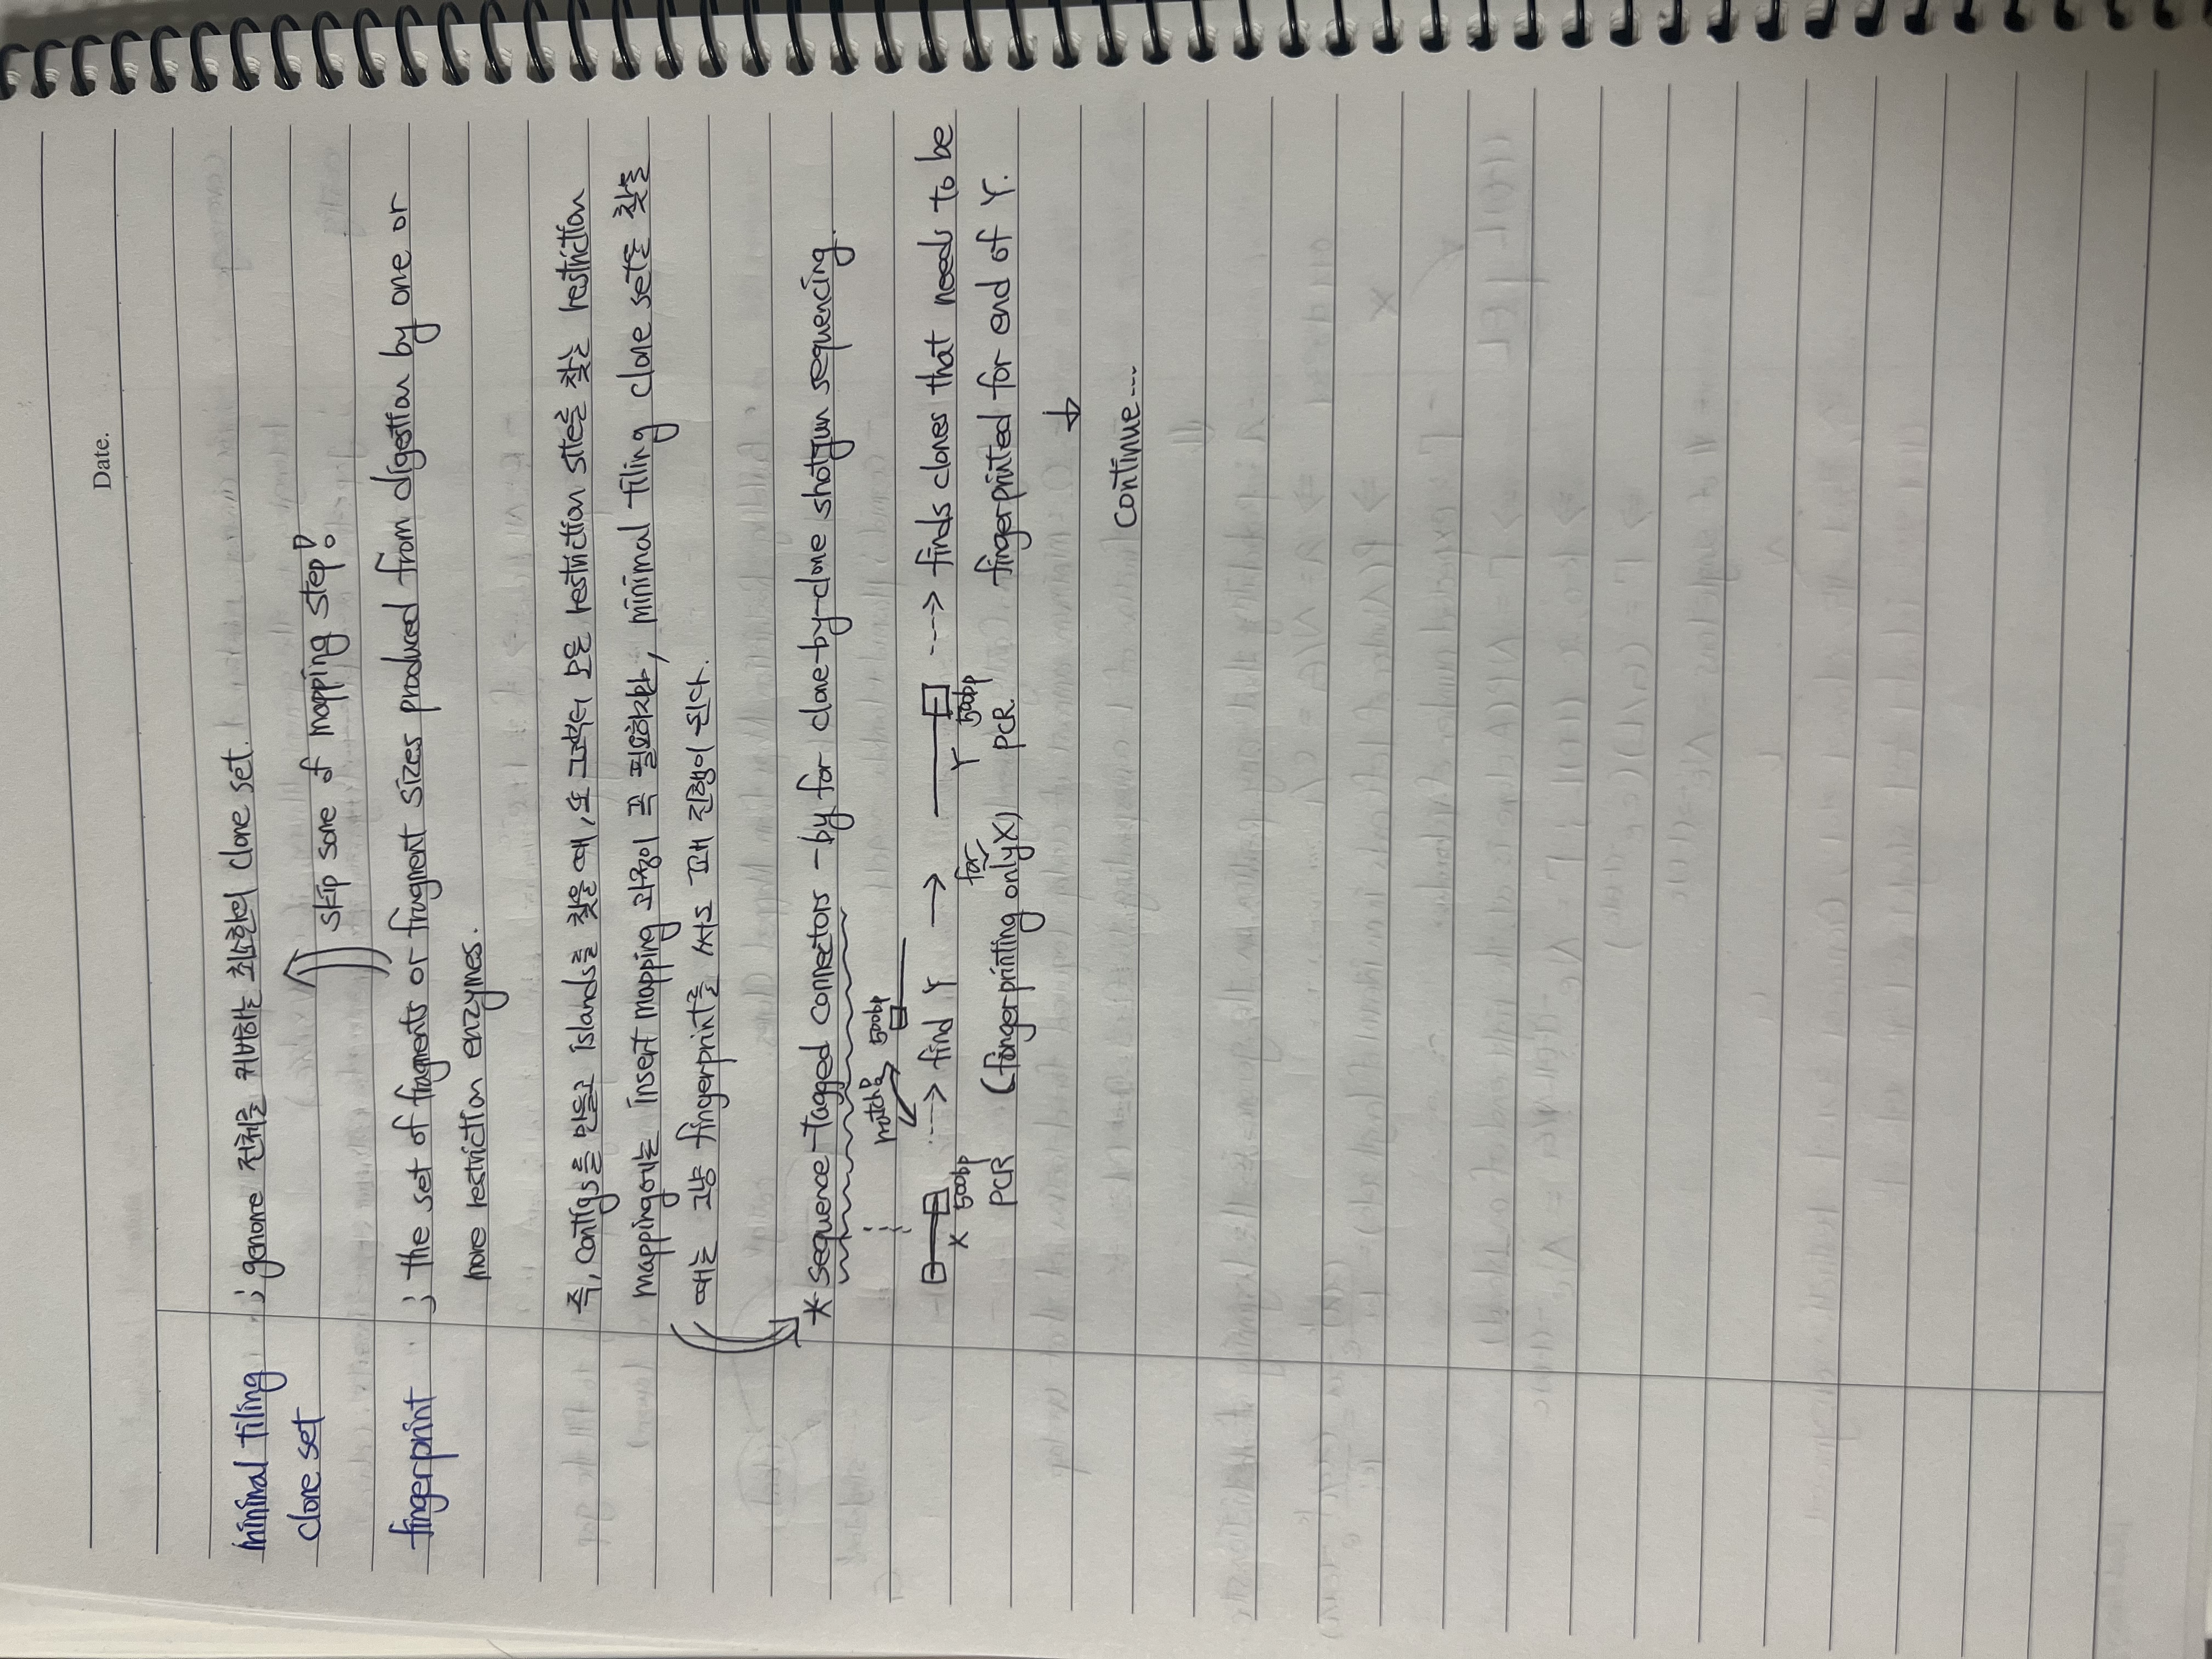 Date.
minimal tiling ; genome 전체를 커버하는 최소한의 clone set.
clone set
skip some of mapping step!
fingerprint ; the set of fragments or fragment sizes produced from digestion by one or
more restriction enzymes.
즉, contigs를 만들고 islands를 찾을 때, 또 그것부터 모든 restriction site를 찾는 restriction
mapping에는 insert mapping 과정이 꼭 필요하지만, minimal tiling clone set를 찾을
때는 그냥 fingerprint를 써도 꽤 진행이 된다.
* Sequence-tagged connectors - by for clone-by-clone shotgun sequencing.
match? 500bp
X 500bp ----> find Y → Y 500bp ----> finds clones that needs to be
PCR (fingerprinting only for X) PCR fingerprinted for end of Y.
↓
continue---